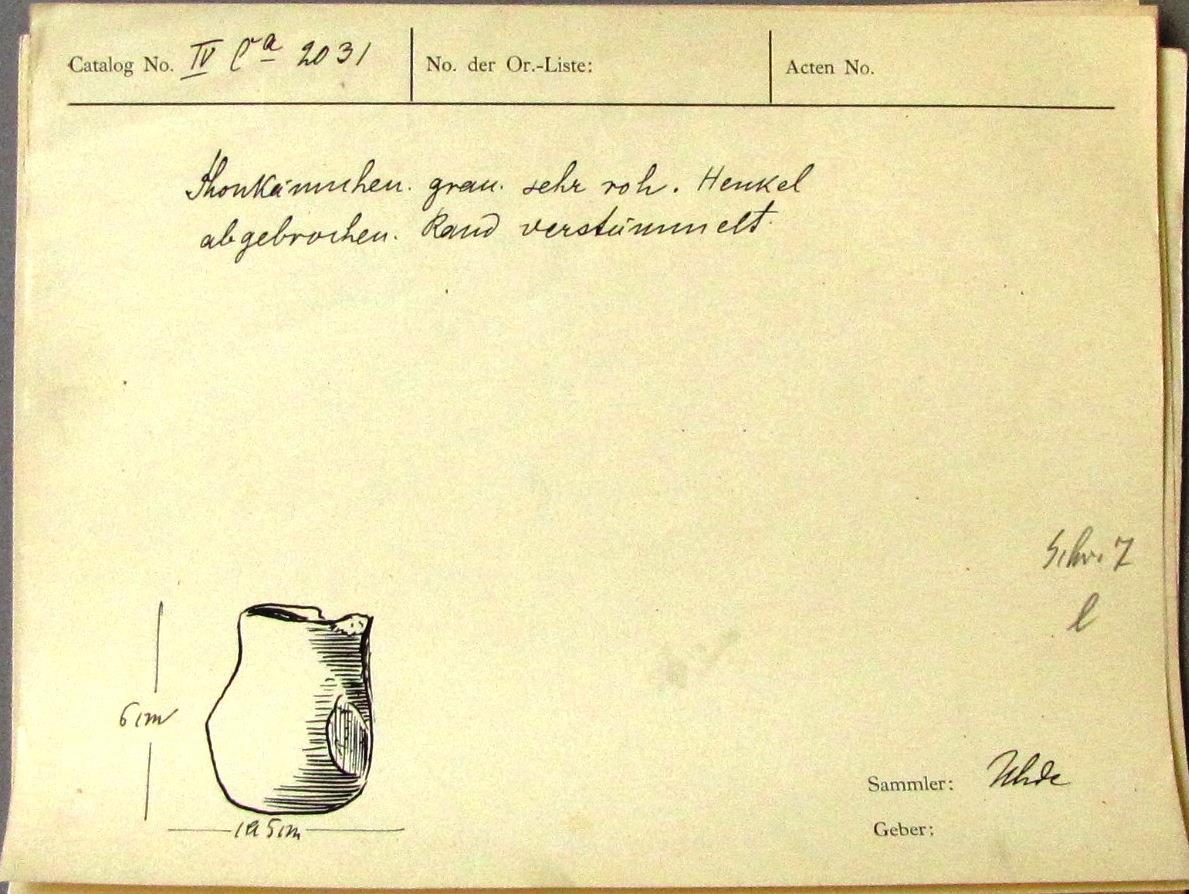 Catalog No. IV Ca 2031
No. der Or.-Liste:
Acten No.
Thonkännchen. grau. sehr roh. Henkel
abgebrochen. Rand verstümmelt.
Schr. 7
l
6 cm
5 cm
Sammler: Uhde
Geber: